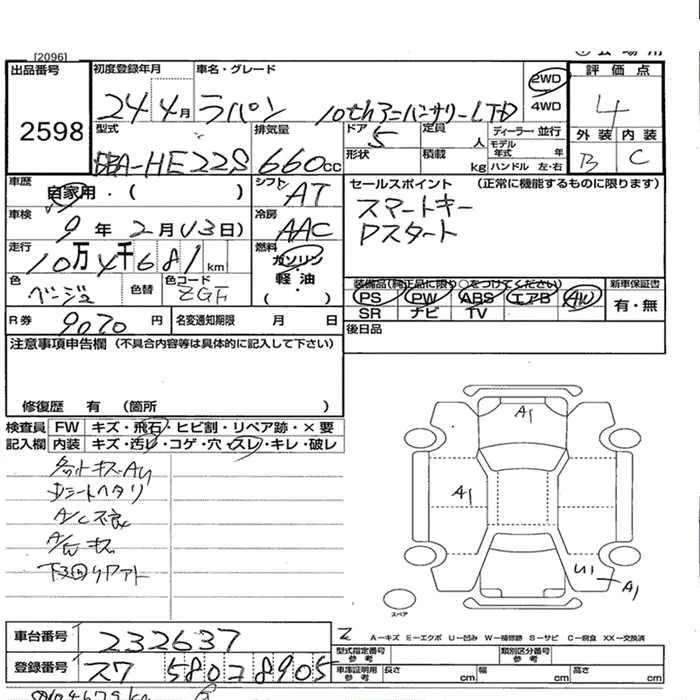 [2096]
出品番号 初度登録年月 車名・グレード 2WD 評価点
2598 24年 4月 ラパン 10thアニバーサリーLTD 4WD 4
型式 排気量 ドア 5 定員 人 ディーラー・並行 外装 内装
DBA-HE22S 660cc 形状 積載 kg モデル年式 年 ハンドル 左・右 B C
車歴 自家用・( ) シフト AT セールスポイント (正常に機能するものに限ります)
車検 9年 2月(13日) 冷房 AAC スマートキー
Pスタート
走行 10万4千681km 燃料 ガソリン・軽油・( )
色 ベージュ 色替 色コード ZGF
装備品(純正品に限り○をつけてください) 新車保証書
PS PW ABS エアB AW 有・無
SR ナビ TV
R券 9070円 名変通知期限 月 日 後日品
注意事項申告欄 (不具合内容等は具体的に記入して下さい)
修復歴 有 (箇所 )
検査員 FW キズ・飛石・ヒビ割・リペア跡・×要
記入欄 内装 キズ・汚レ・コゲ・穴・スレ・キレ・破レ
Dシートヘタリ
A/C不良
A/W キズ
A1
A1
U1
A1
スペア
車台番号 232637
登録番号 580 8905
A-キズ E-エクボ U-凹み W-補修跡 S-サビ C-腐食 XX-交換済
型式指定番号 参考 類別区分番号 参考
車庫証明用 参考 長さ cm 幅 cm 高さ cm